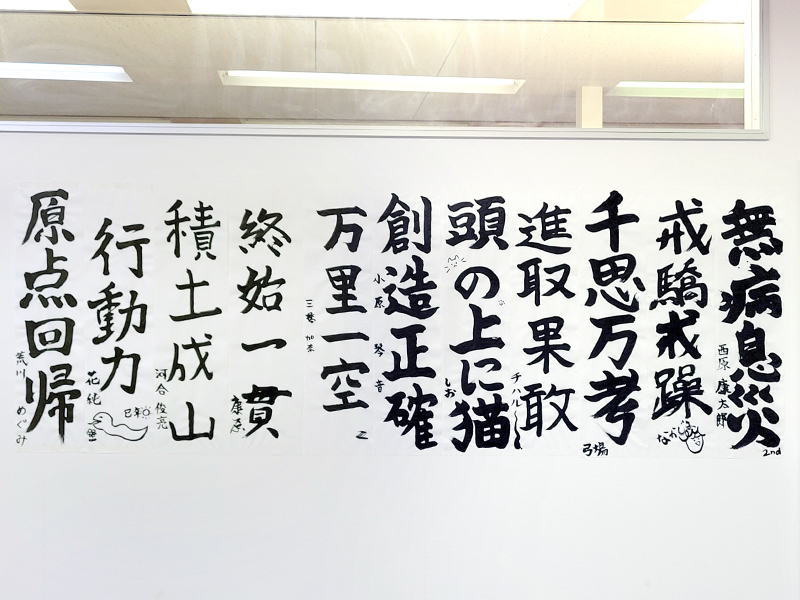 無病息災
西原 康太郎
2nd
戒驕戒躁
千思万考
弓場
進取果敢
チハル
頭の上に猫
しお
創造正確
小原 琴音
万里一空
終始一貫
康彦
積土成山
河合 俊亮
行動力
花純
巳年
原点回帰
荒川 めぐみ